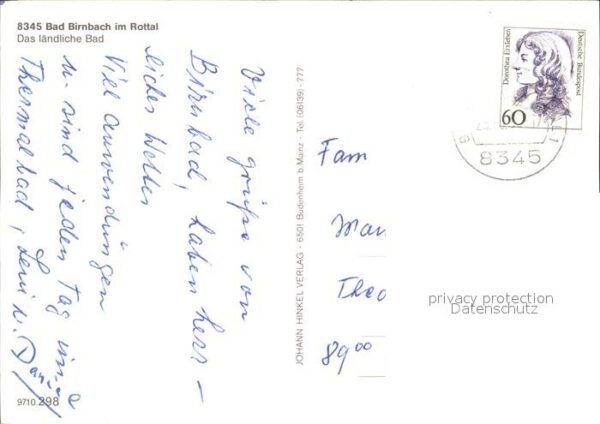 8345 Bad Birnbach im Rottal
Das ländliche Bad
Viele grüße von
Birnbad, haben herr-
liches Wetter
Viel anwendungen
u. sind jeden Tag im
Thermalbad, Leni u.
9710.298
JOHANN HINKEL VERLAG - 6501 Budenheim b. Mainz - Tel. (06139) - ???
Dorothea Erxleben
Deutsche Bundespost
60
8345
Fam
Man
Theo
8900
privacy protection
Datenschutz